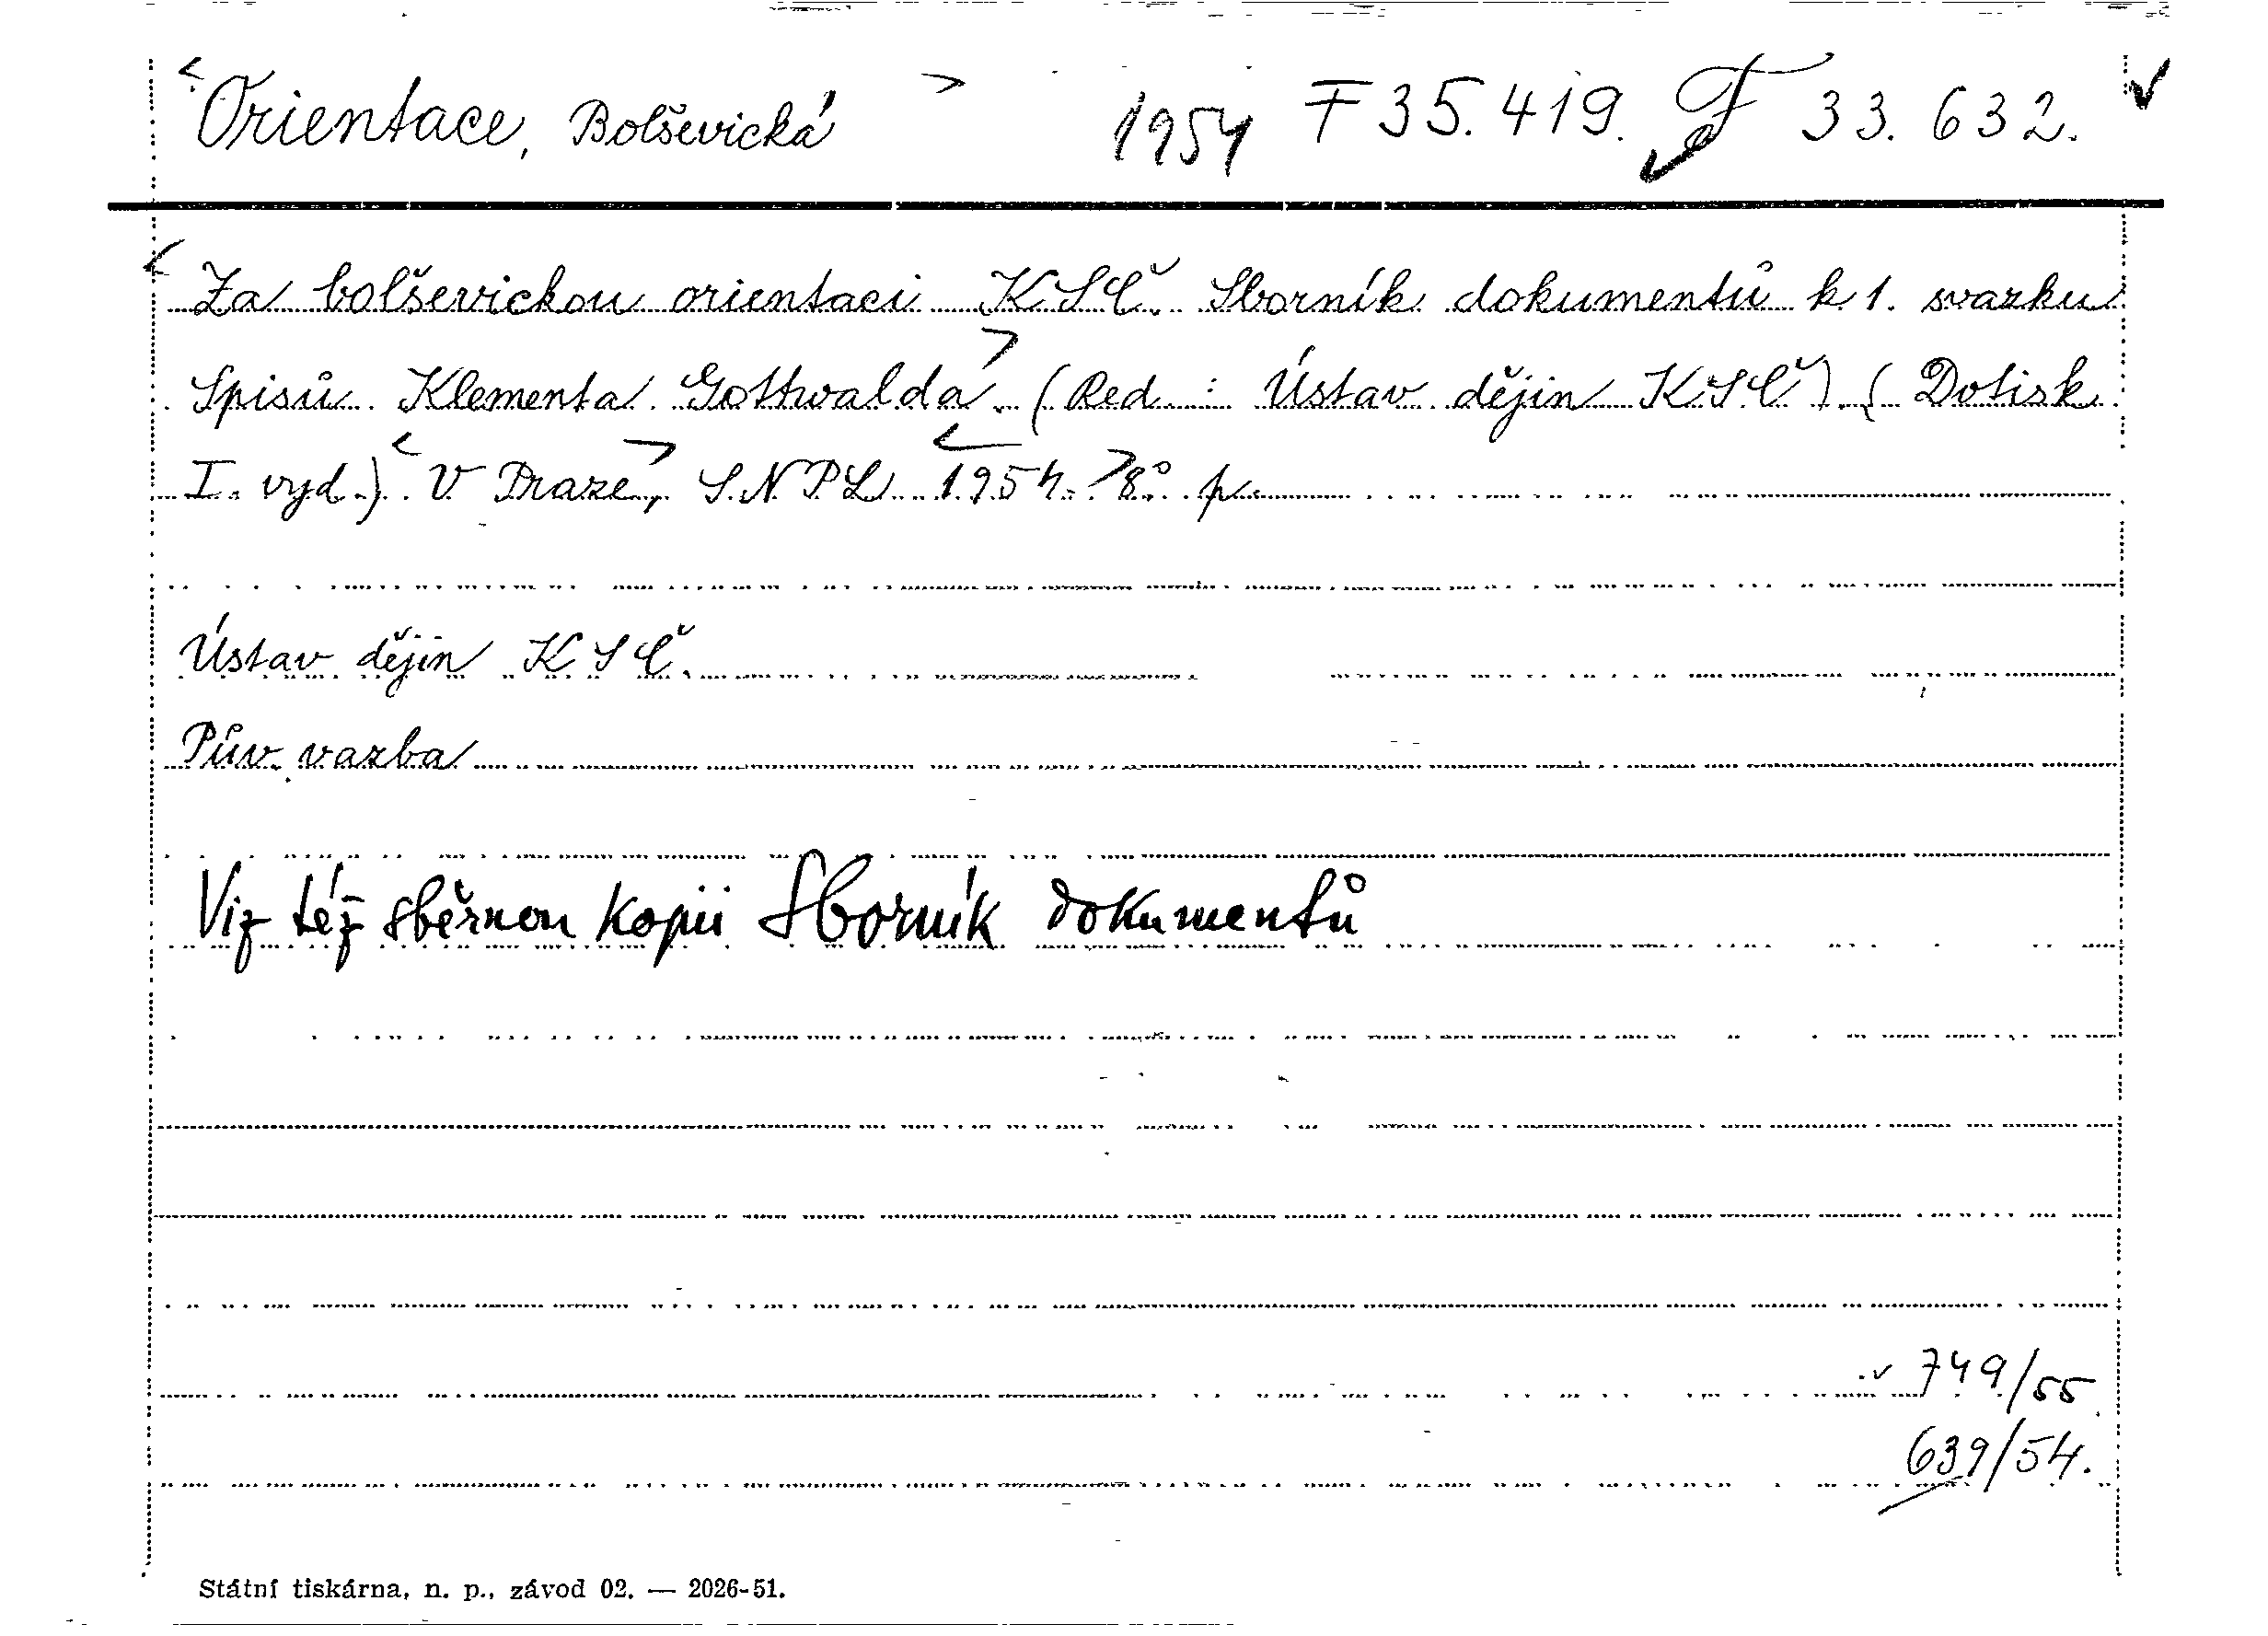 <Orientace, Bolševická> 1954 F 35.419. F 33.632. ✓
<Za bolševickou orientaci KSČ. Sborník dokumentů k 1. svazku
Spisů Klementa Gottwalda>. (Red.: Ústav dějin KSČ) (Dotisk
I. vyd.) <V Praze>, SNPL <1954.> 8°. p.
Ústav dějin KSČ.
Pův. vazba
Viz též sběrnou kopii Sborník dokumentů
✓ 749/55
639/54.
Státní tiskárna, n. p., závod 02. — 2026-51.